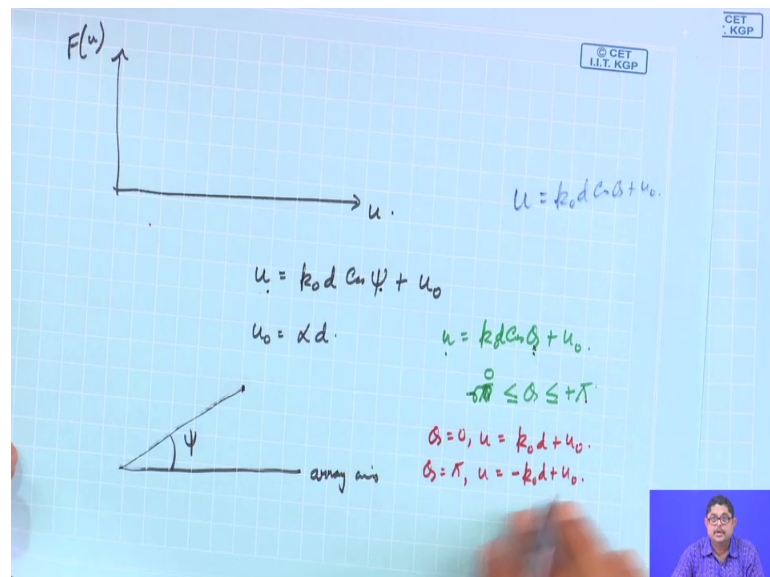 CET
I.I.T. KGP
© CET
I.I.T. KGP
F(u)
u.
u = k₀d Cos θ + u₀.
u = k₀d Cos ψ + u₀
u₀ = αd.
u = kd Cos θ + u₀.
0 ≤ θ ≤ +π
θ = 0, u = k₀d + u₀.
θ = π, u = -k₀d + u₀.
ψ
array axis